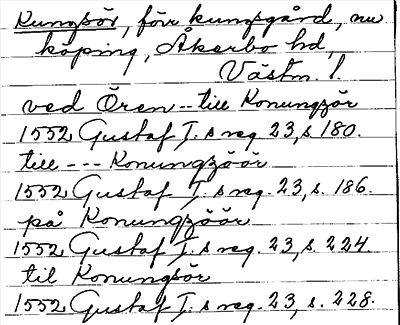 Kungsör, förr kungsgård, nu
köping, Åkerbo hd,
Västm. l.
ved Ören -- till Konungzör
1552 Gustaf I. s reg. 23, s. 180.
till --- Konungzöör
1552 Gustaf I. s reg. 23, s. 186.
på Konungzöör
1552 Gustaf I. s reg. 23, s. 224.
til Konungsör
1552 Gustaf I. s reg. 23, s. 228.